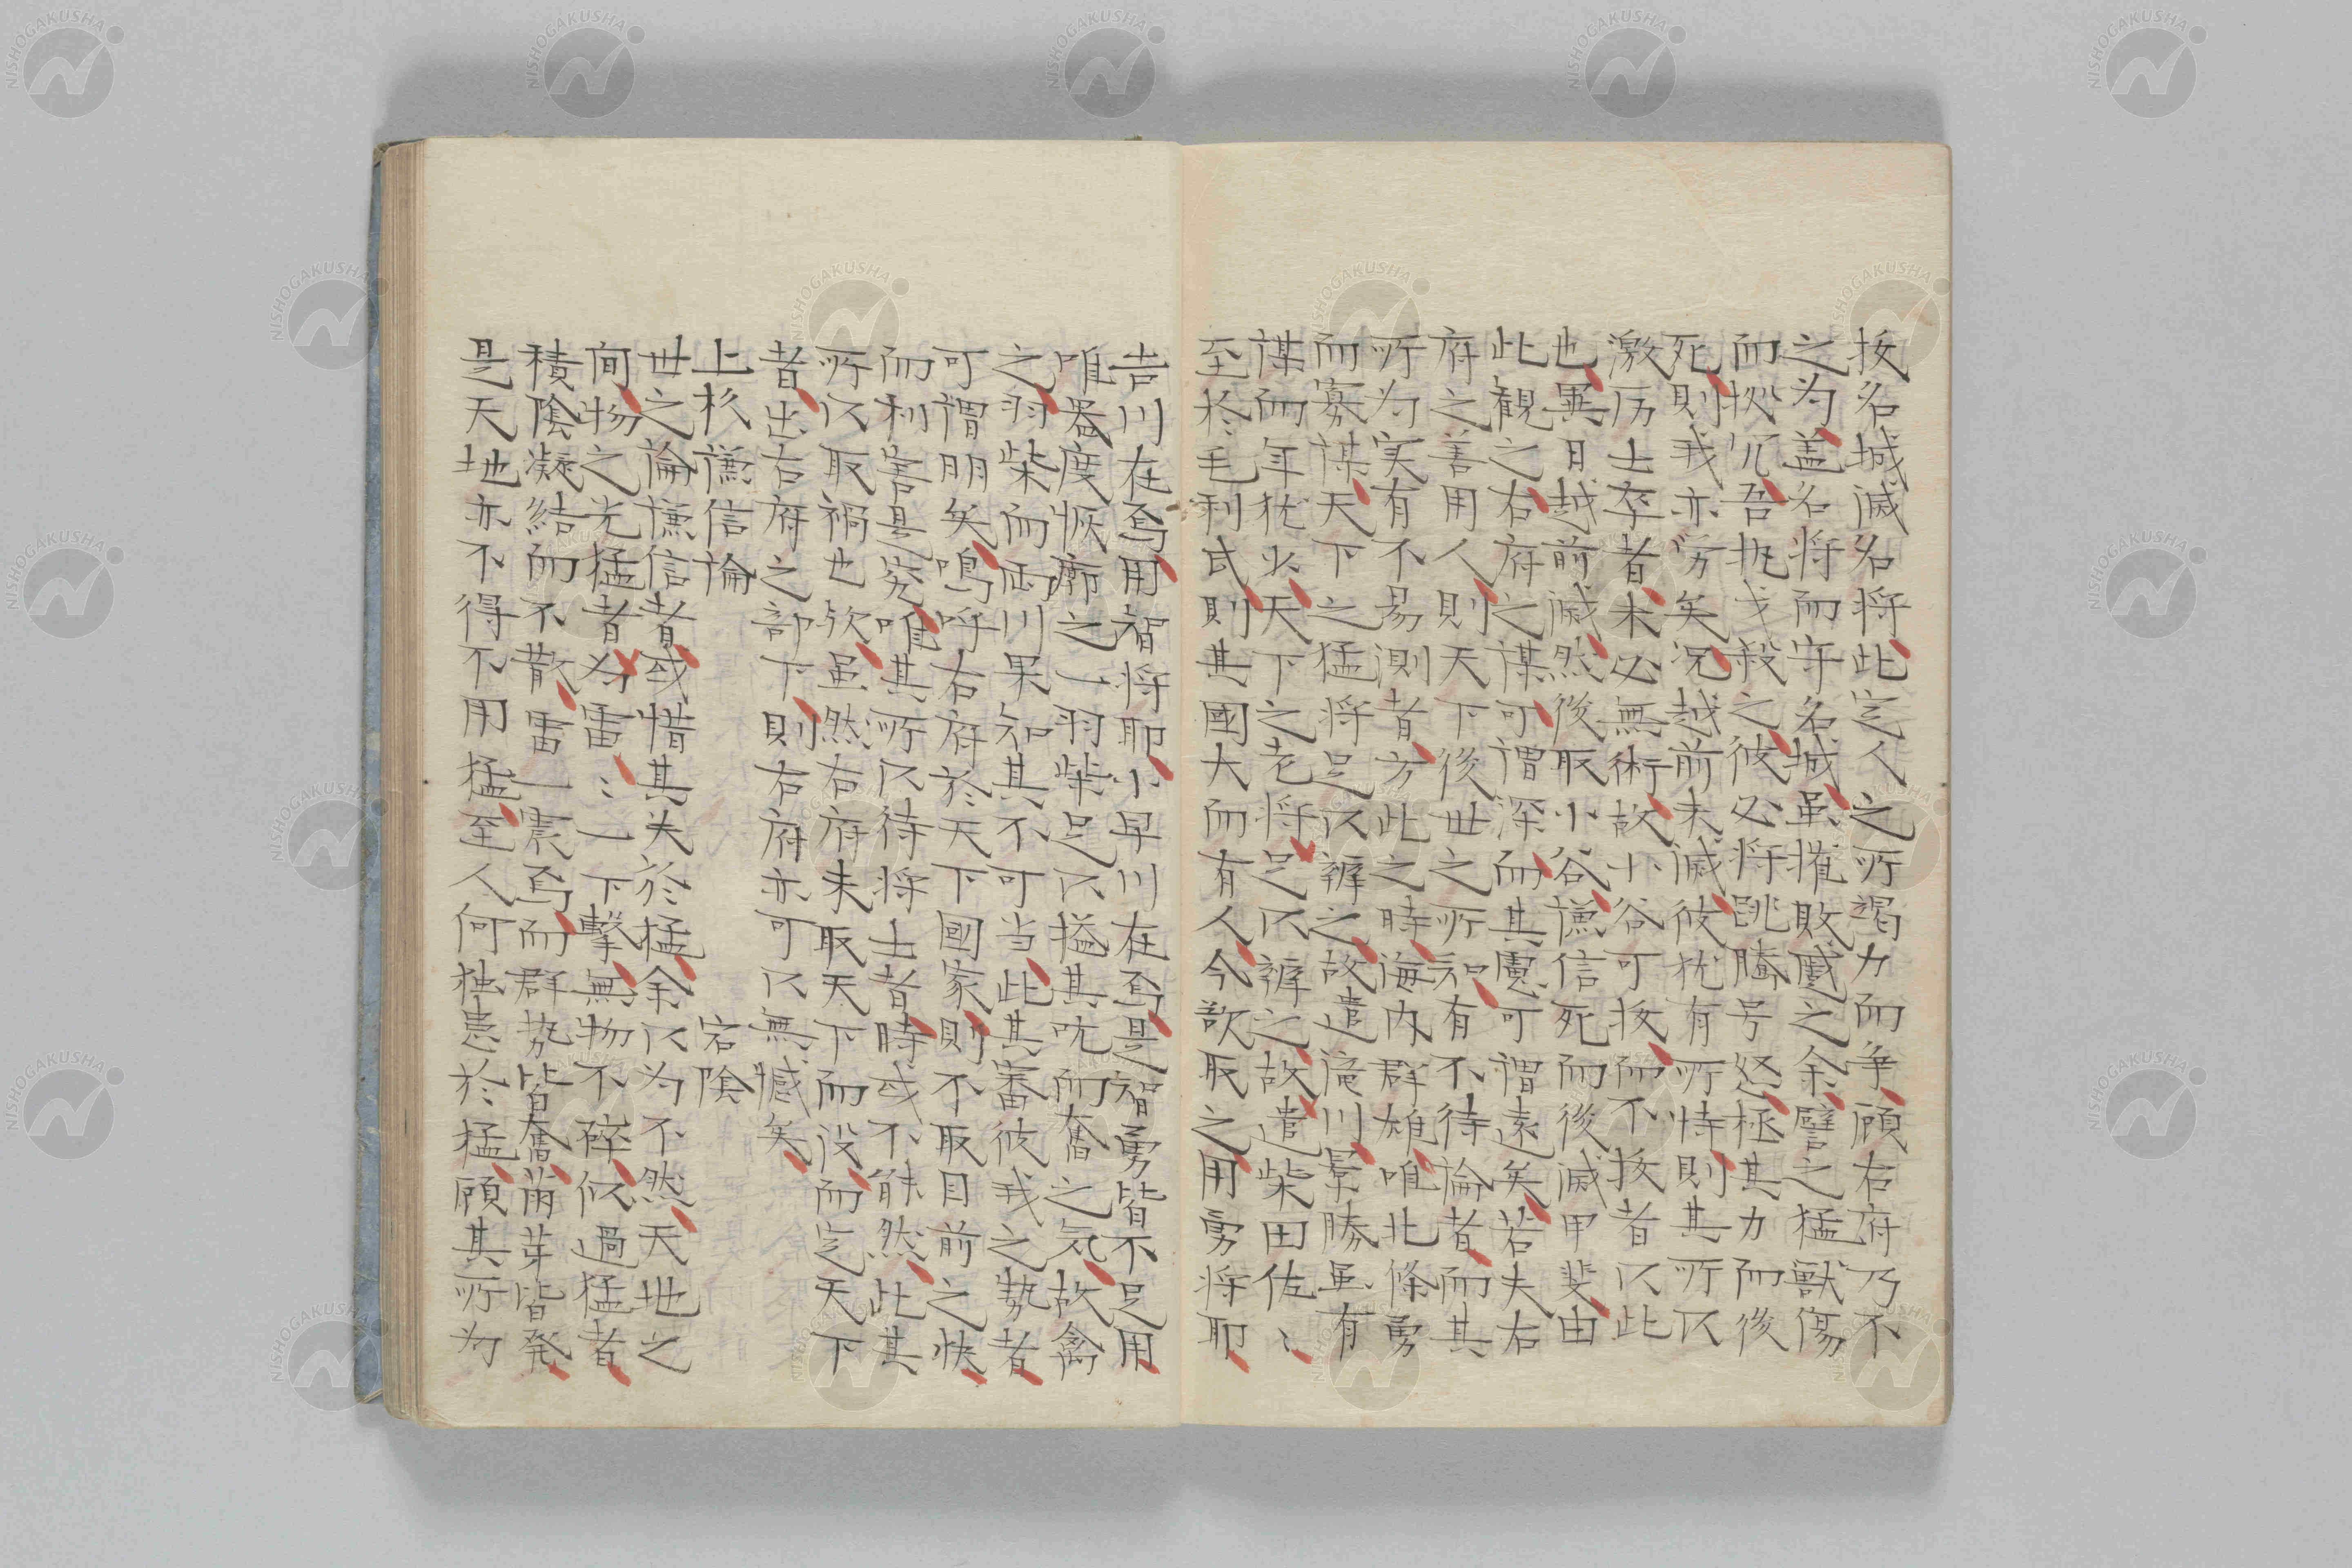 抜名城滅名将此定人之所竭力而争顧右府乃不
之為蓋名将而守名城虽摧敗蹙之余譬之猛獣傷
而拠穴吾執戈殺之彼必将跳騰号怒極其力而後
死則我亦労矣況越前未滅彼犹有所恃則其所以
激厉士卒者未必無術故小谷可抜而不抜者以此
也異日越前滅然後取小谷謙信死而後滅甲斐由
此観之右府之謀可謂深而其慮可謂遠矣若夫右
府之善用人則天下後世之所知有不待論者而其
所为実有不易測者方此之時海内群雄唯北條勇
而寡謀天下之猛将足以裤之故遣滝川景勝虽有
謀而年犹少天下之老将足以裤之故遣柴田佐〻
至於毛利氏則其國大而有人今欲取之用勇将耶
吉川在焉用智将耶小早川在焉是智勇皆不足用
唯器度恢廓之一羽柴足以搤其吭而奮之気故禽
之羽柴而両川果知其不可当此其審彼我之勢者
可謂明矣嗚呼右府於天下國家則不取目前之快
而利害是究唯其所以待将士者時或不能然此其
所以取禍也欤虽然右府未取天下而没而定天下
者出右府之部下則右府亦可以無憾矣
上杉謙信論
宕陰
世之論謙信者或惜其失於猛余以为不然天地之
間物之尤猛者为雷〻一下撃無物不碎似過猛者
積陰凝結而不散雷一震焉而群勢皆奮萠芽皆発
是天地亦不得不用猛至人何独恚於猛顧其所为